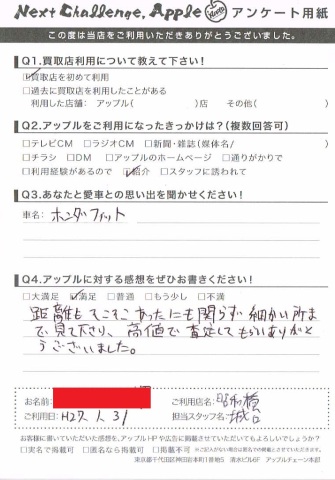 Next Challenge, Apple アンケート用紙
この度は当店をご利用いただきありがとうございました。
Q1.買取店利用について教えて下さい!
☑買取店を初めて利用
□過去に買取店を利用したことがある
利用した店舗: アップル( )店 その他( )
Q2.アップルをご利用になったきっかけは?(複数回答可)
□テレビCM □ラジオCM □新聞・雑誌(媒体名/ )
□チラシ □DM □アップルのホームページ □通りがかりで
□利用経験があるので ☑紹介 □スタッフに誘われて
Q3.あなたと愛車との思い出を聞かせください!
車名: ホンダフィット
Q4.アップルに対する感想をぜひお書きください!
□大満足 ☑満足 □普通 □もう少し □不満
距離もそこそこあったにも関らず細かい所ま
で見て下さり、高値で査定してもらいありがと
うございました。
お名前: ご利用店名: 昭和橋
ご利用日: H27.1.31 担当スタッフ名: 城台
お客様に書いていただいた感想を、アップルHPや広告に掲載させていただいてもよろしいでしょうか?
□実名で掲載可 □匿名なら掲載可 □掲載不可 ※ご記入がない場合は匿名での掲載可とさせていただきます。
東京都千代田区神田岩本町1番地5 清水ビル6F アップルチェーン本部